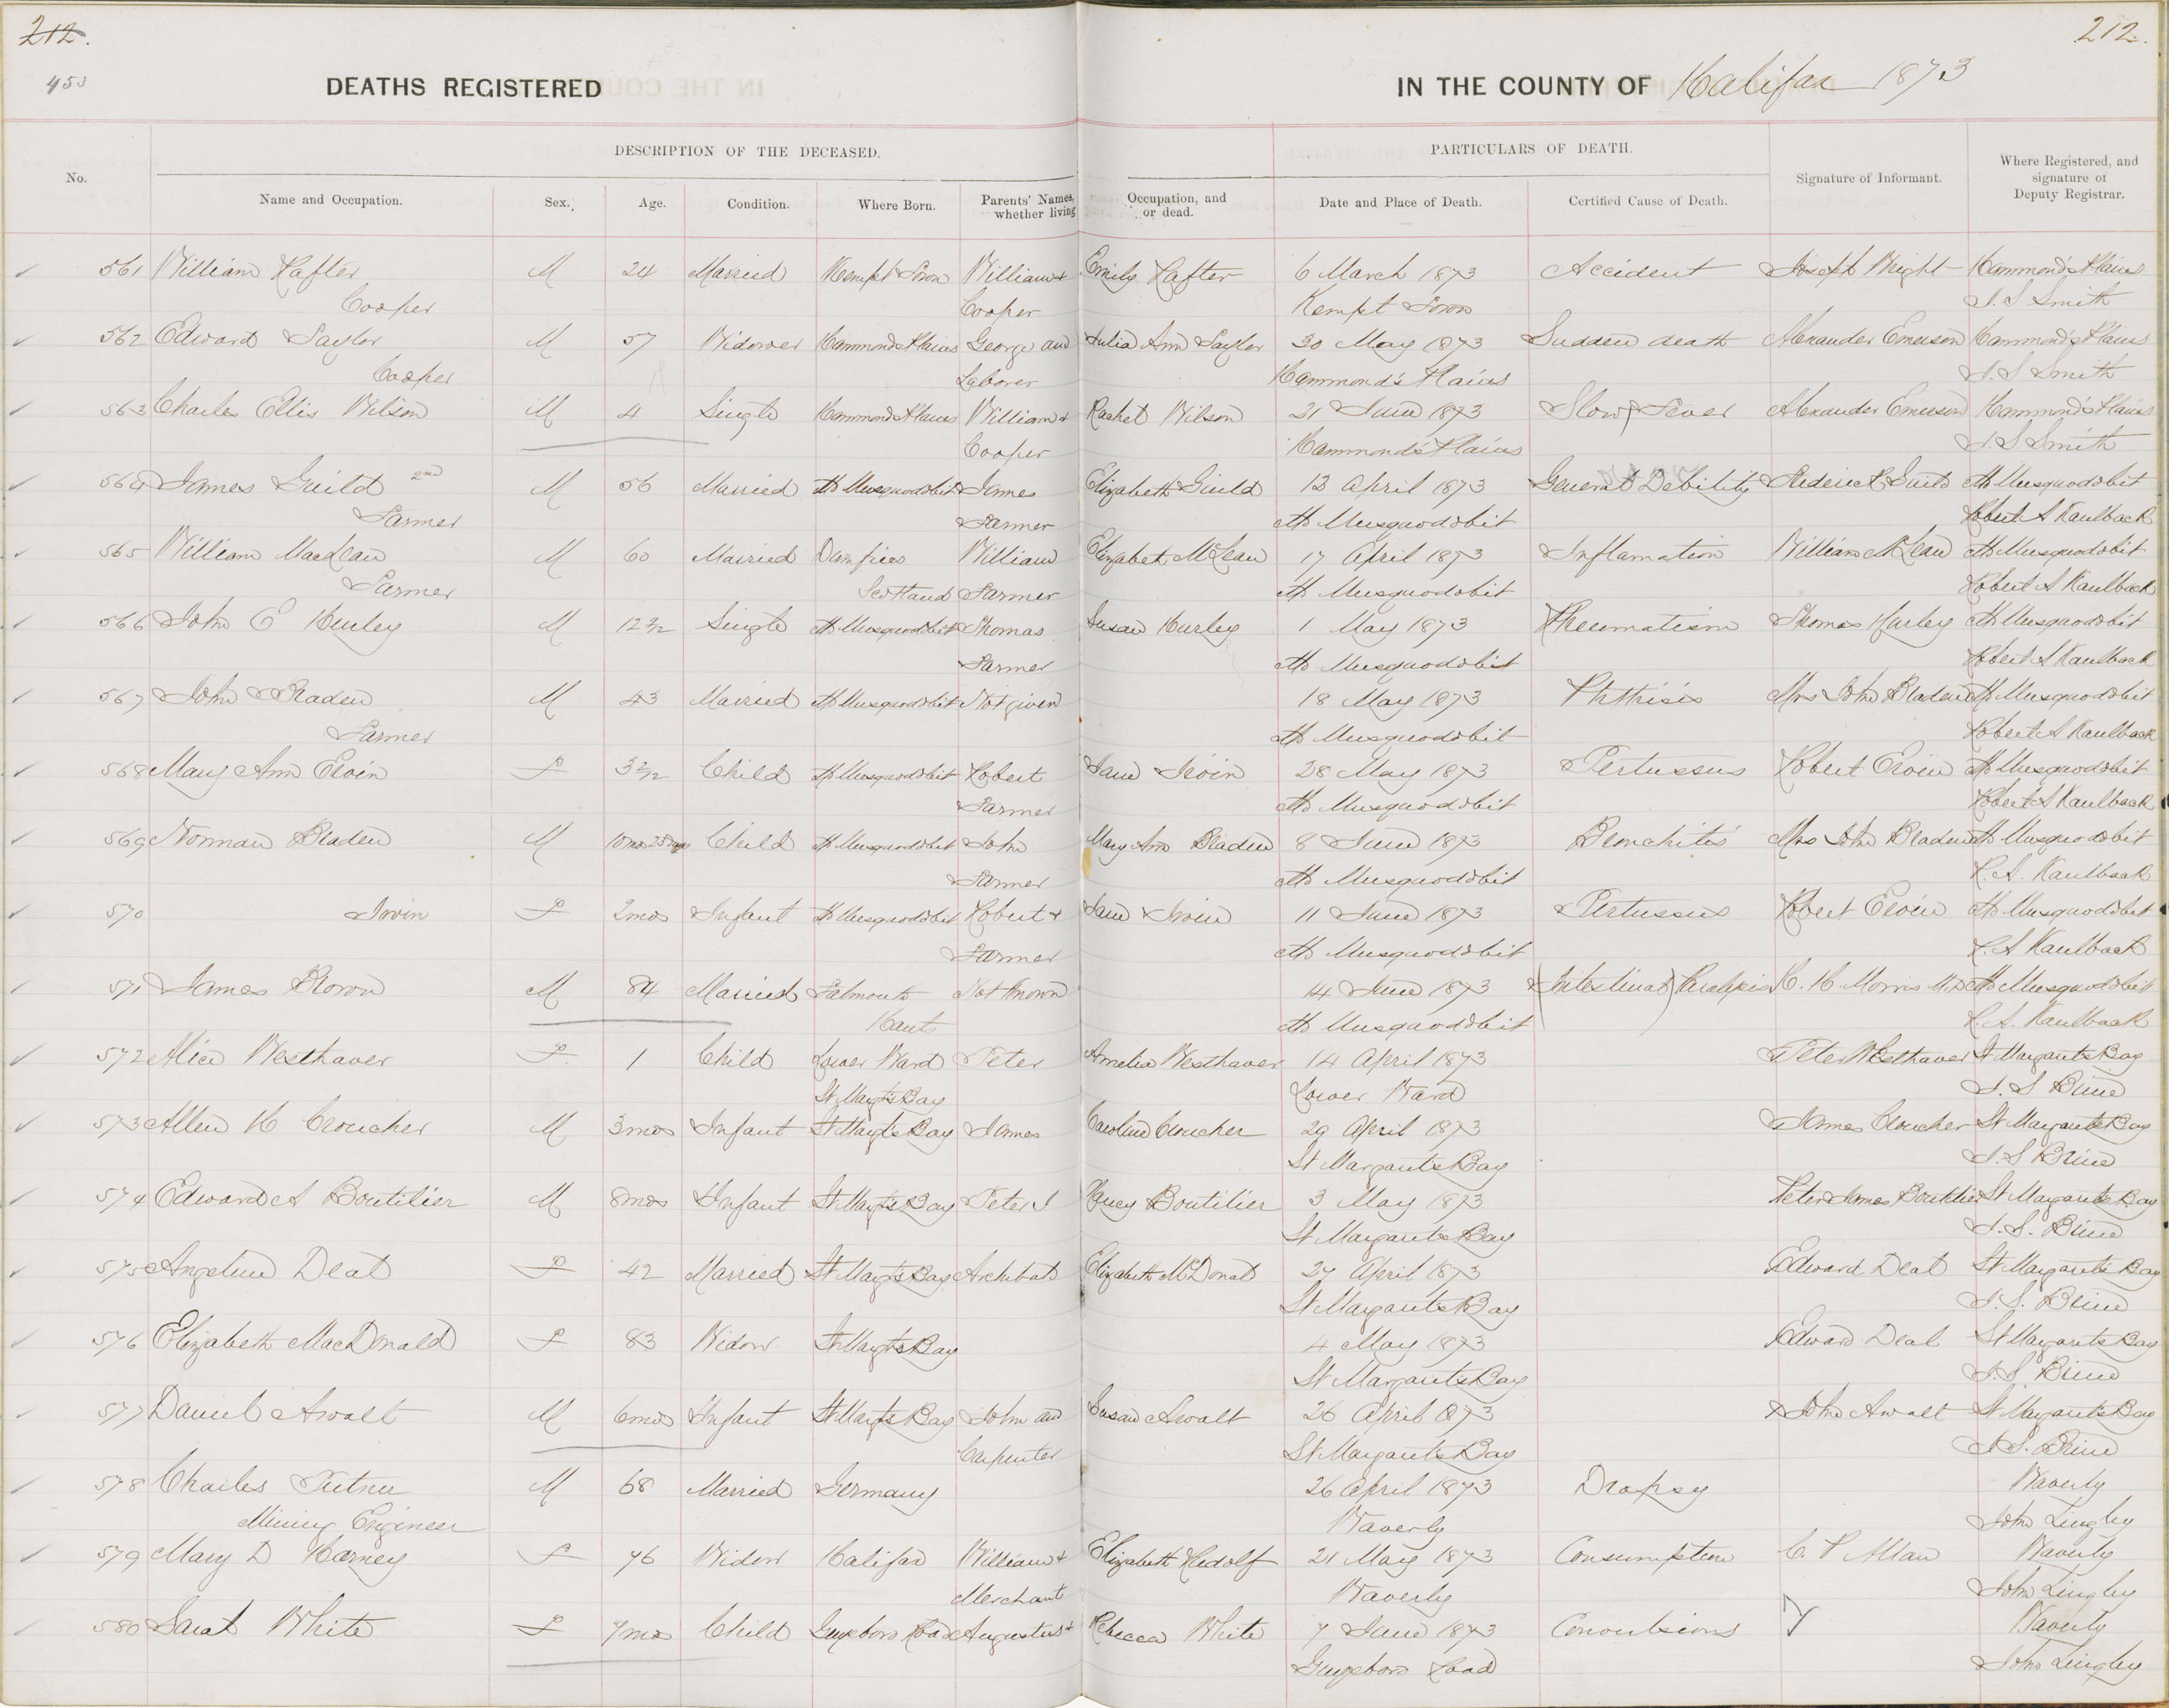 212.
212.
453
DEATHS REGISTERED IN THE COUNTY OF Halifax 1873
DESCRIPTION OF THE DECEASED.
PARTICULARS OF DEATH.
No. Name and Occupation. Sex. Age. Condition. Where Born. Parents' Names, Occupation, and Date and Place of Death. Certified Cause of Death. Signature of Informant. Where Registered, and
whether living or dead. signature of
Deputy Registrar.
561 William Hafter M 24 Married Kempt Town William + Emily Hafter 6 March 1873 Accident Joseph Wright Hammond's Plains
Cooper Cooper Kempt Town J. S Smith
562 Edward Taylor M 57 Widower Hammonds Plains George and Julia Ann Taylor 30 May 1873 Sudden death Alexander Emerson Hammond's Plains
Cooper Laborer Hammond's Plains J. S Smith
563 Charles Ellis Wilson M 4 Single Hammonds Plains William + Rachel Wilson 21 June 1873 Slow Fever Alexander Emerson Hammond's Plains
Cooper Hammond's Plains J. S Smith
564 James Guild 2nd M 56 Married M Musquodobit James Elizabeth Guild 13 April 1873 General Debility Frederick Guild M Musquodobit
Farmer Farmer M Musquodobit Robert A Kaulback
565 William MacLean M 60 Married Dumfries William Elizabeth McLean 17 April 1873 Inflamation William McLean M Musquodobit
Farmer Scotland Farmer M Musquodobit Robert A Kaulback
566 John E Hurley M 12 3/12 Single M Musquodobit Thomas Susan Hurley 1 May 1873 Rheumatism Thomas Hurley M Musquodobit
Farmer M Musquodobit Robert A Kaulback
567 John Braden M 43 Married M Musquodobit Not given 18 May 1873 Phthisis Mrs John Braden M Musquodobit
Farmer M Musquodobit Robert A Kaulback
568 Mary Ann Ervin F 3 2/12 Child M Musquodobit Robert Jane Irvin 28 May 1873 Pertussus Robert Ervin M Musquodobit
Farmer M Musquodobit Robert A Kaulback
569 Norman Braden M 10 mos 28 Days Child M Musquodobit John Mary Ann Braden 8 June 1873 Bronchitis Mrs John Braden M Musquodobit
Farmer M Musquodobit R. A. Kaulback
570 Irvin F 2 mos Infant M Musquodobit Robert + Jane Irvin 11 June 1873 Pertussus Robert Ervin M Musquodobit
Farmer M Musquodobit R. A Kaulback
571 James Brown M 84 Married Falmouth Not Known 14 June 1873 Intestinal Paralysis H. H. Morris M.D M Musquodobit
Hants M Musquodobit R. A. Kaulback
572 Alice Westhaver F 1 Child Lower Ward Peter Amelia Westhaver 14 April 1873 Peter Westhaver St Margarets Bay
St Margts Bay Lower Ward J. S Brine
573 Allen H Croucher M 3 mos Infant St Margts Bay James Caroline Croucher 29 April 1873 James Croucher St Margarets Bay
St Margarets Bay J. S Brine
574 Edward A Boutilier M 8 mos Infant St Margts Bay Peter J Lucy Boutilier 3 May 1873 Peter James Boutilier St Margarets Bay
St Margarets Bay J. S. Brine
575 Angeline Deal F 42 Married St Margts Bay Archibald Elizabeth McDonald 27 April 1873 Edward Deal St Margarets Bay
St Margarets Bay J. S. Brine
576 Elizabeth MacDonald F 83 Widow St Margts Bay 4 May 1873 Edward Deal St Margarets Bay
St Margarets Bay J. S Brine
577 Daniel Awalt M 6 mos Infant St Margts Bay John and Susan Awalt 26 April 1873 John Awalt St Margarets Bay
Carpenter St Margarets Bay J. S. Brine
578 Charles M 68 Married Germany 26 April 1873 Dropsy Waverly
Mining Engineer Waverly John Lingley
579 Mary D Harney F 76 Widow Halifax William + Elizabeth 21 May 1873 Consumption C. P Allan Waverly
Merchant Waverly John Lingley
580 Sarah White F 7 mos Child Guysboro Road Augustus + Rebecca White 7 June 1873 Convulsions Waverly
Guysboro Road John Lingley